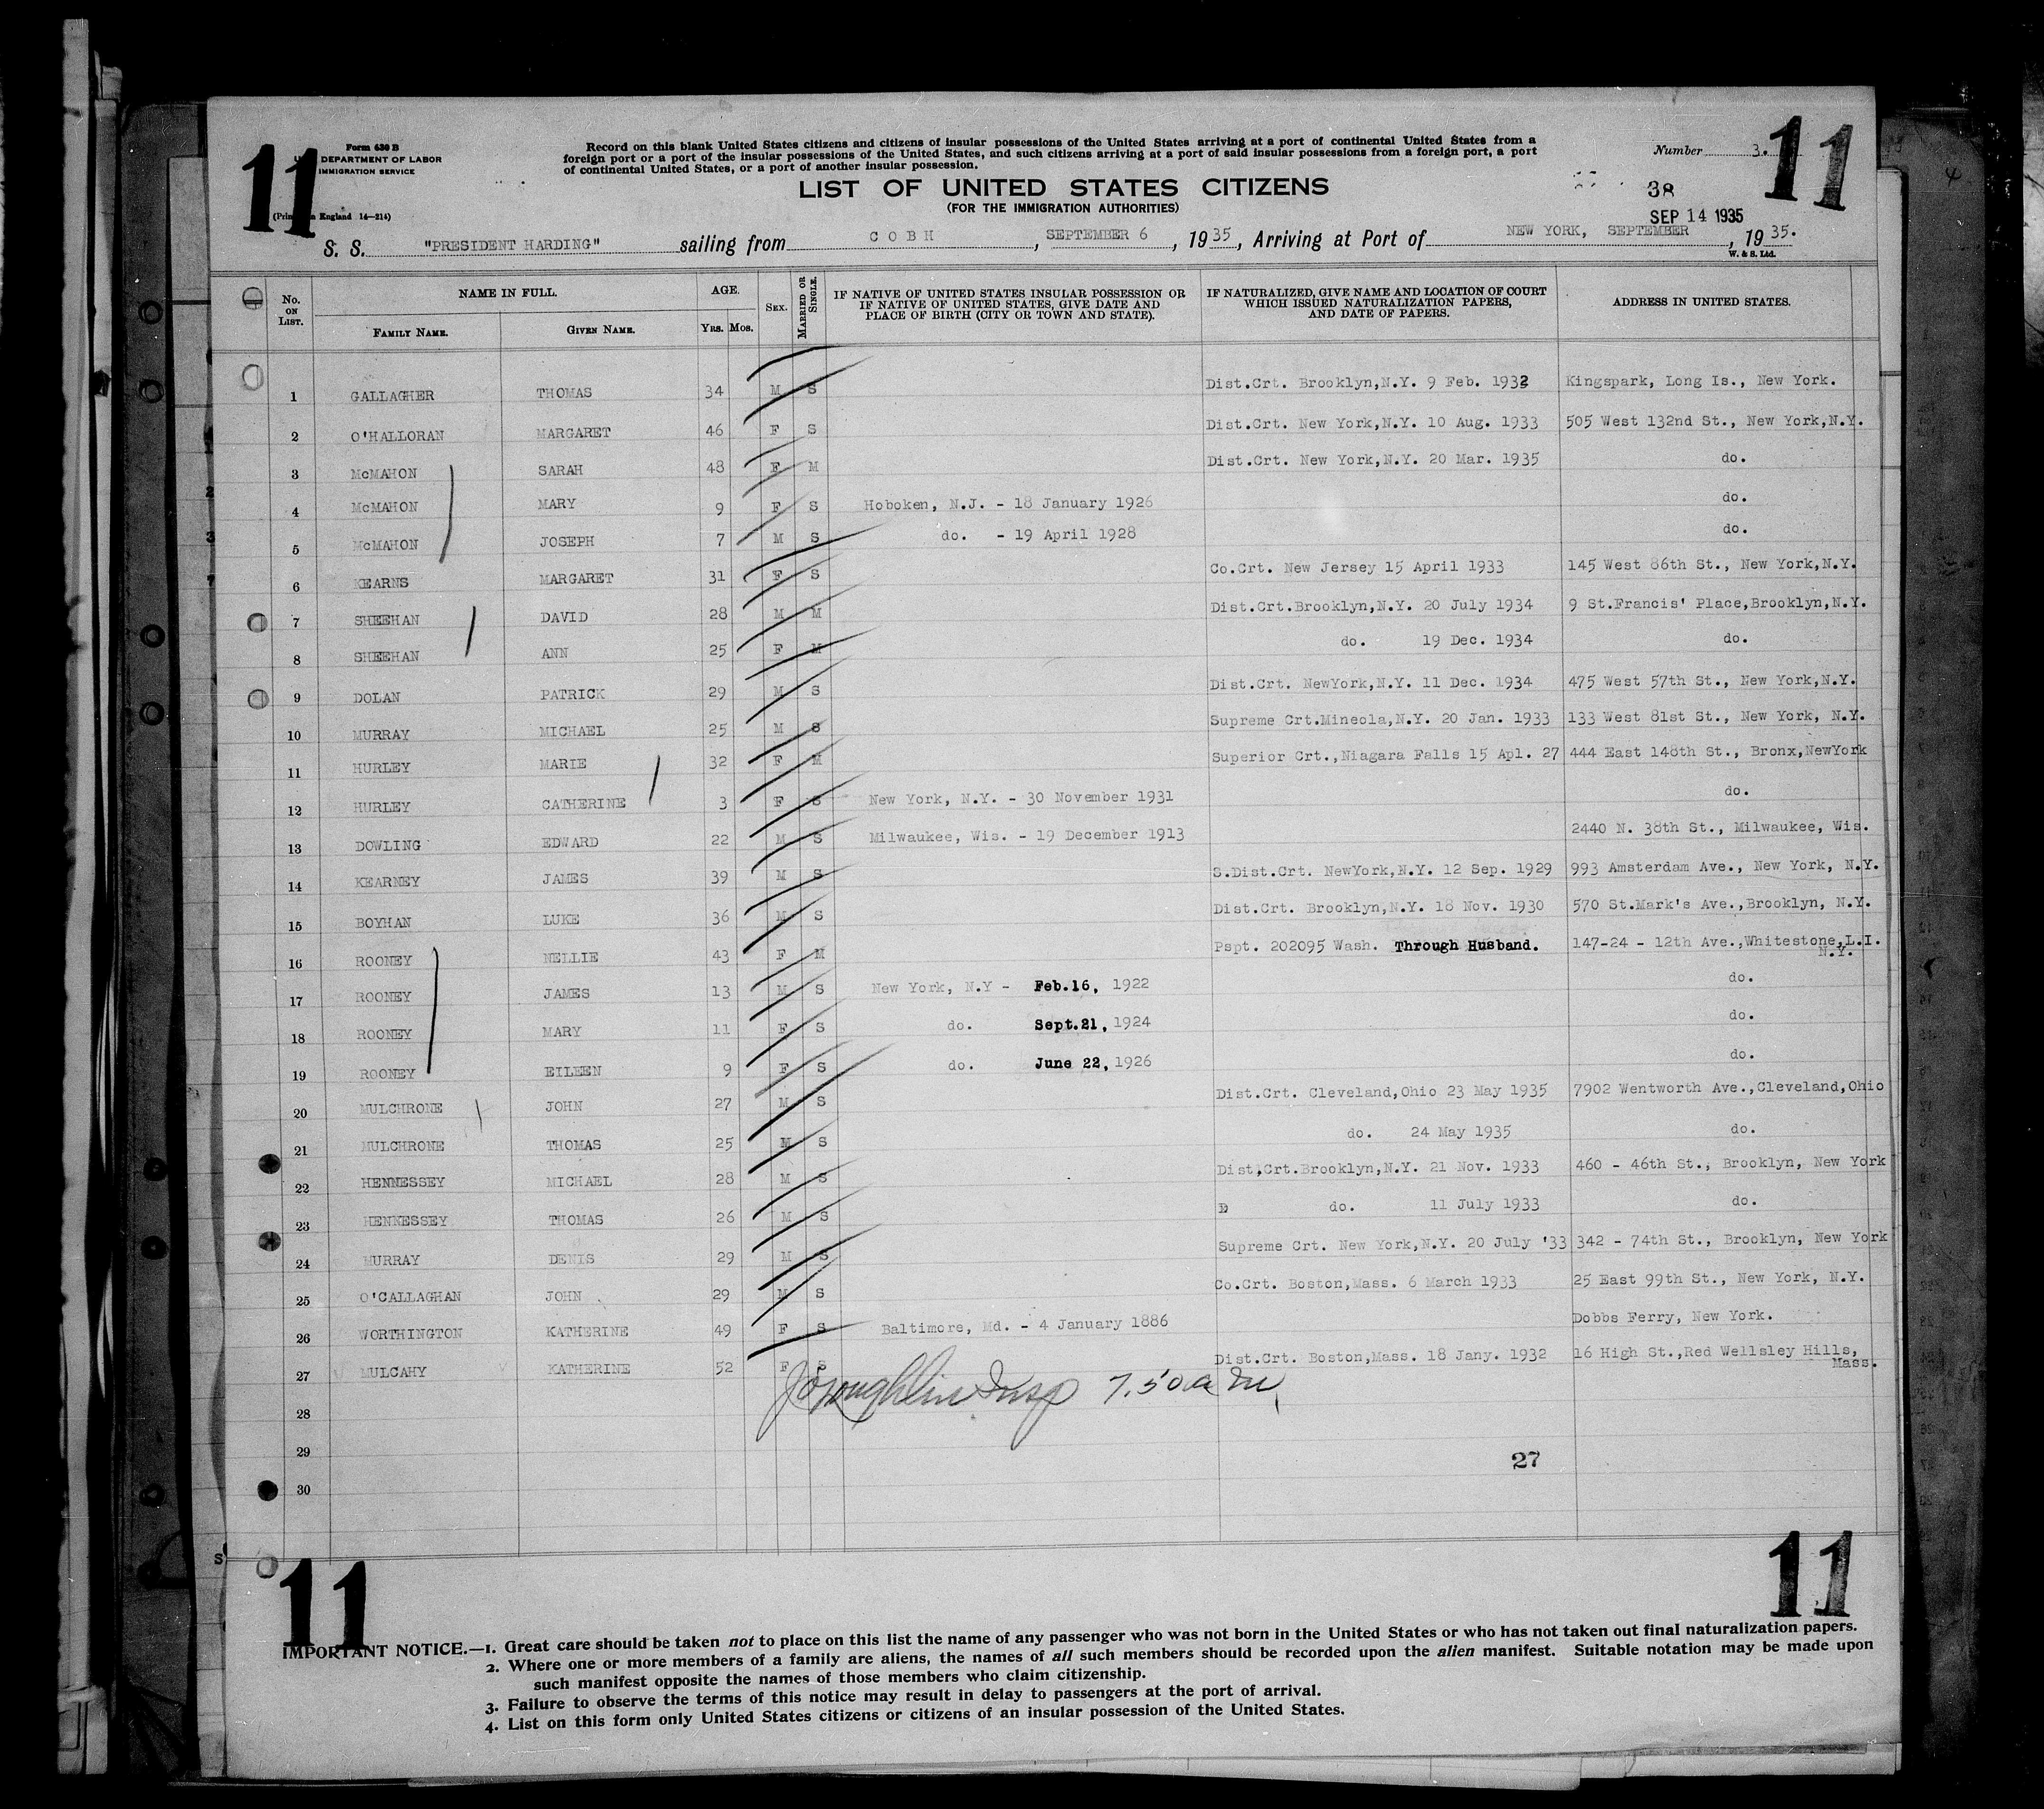 11
11
Form 630 B
DEPARTMENT OF LABOR
IMMIGRATION SERVICE
England 14—214)
Record on this blank United States citizens and citizens of insular possessions of the United States arriving at a port of continental United States from a
foreign port or a port of the insular possessions of the United States, and such citizens arriving at a port of said insular possessions from a foreign port, a port
of continental United States, or a port of another insular possession.
Number 3.
LIST OF UNITED STATES CITIZENS
(FOR THE IMMIGRATION AUTHORITIES)
38
SEP 14 1935
S. S. "PRESIDENT HARDING" sailing from COBH, SEPTEMBER 6, 1935, Arriving at Port of NEW YORK, SEPTEMBER, 1935.
W. & S. Ltd.
No. ON LIST. NAME IN FULL. FAMILY NAME. GIVEN NAME. AGE. YRS. MOS. SEX. MARRIED OR SINGLE. IF NATIVE OF UNITED STATES INSULAR POSSESSION OR IF NATIVE OF UNITED STATES, GIVE DATE AND PLACE OF BIRTH (CITY OR TOWN AND STATE). IF NATURALIZED, GIVE NAME AND LOCATION OF COURT WHICH ISSUED NATURALIZATION PAPERS, AND DATE OF PAPERS. ADDRESS IN UNITED STATES.
1 GALLAGHER THOMAS 34 M S Dist.Crt. Brooklyn,N.Y. 9 Feb. 1932 Kingspark, Long Is., New York.
2 O'HALLORAN MARGARET 46 F S Dist.Crt. New York,N.Y. 10 Aug. 1933 505 West 132nd St., New York,N.Y.
3 McMAHON SARAH 48 F M Dist.Crt. New York,N.Y. 20 Mar. 1935 do.
4 McMAHON MARY 9 F S Hoboken, N.J. - 18 January 1926 do.
5 McMAHON JOSEPH 7 M S do. - 19 April 1928 do.
6 KEARNS MARGARET 31 F S Co.Crt. New Jersey 15 April 1933 145 West 86th St., New York,N.Y.
7 SHEEHAN DAVID 28 M M Dist.Crt.Brooklyn,N.Y. 20 July 1934 9 St.Francis' Place,Brooklyn,N.Y.
8 SHEEHAN ANN 25 F M do. 19 Dec. 1934 do.
9 DOLAN PATRICK 29 M S Dist.Crt. NewYork,N.Y. 11 Dec. 1934 475 West 57th St., New York,N.Y.
10 MURRAY MICHAEL 25 M S Supreme Crt.Mineola,N.Y. 20 Jan. 1933 133 West 81st St., New York, N.Y.
11 HURLEY MARIE 32 F M Superior Crt.,Niagara Falls 15 Apl. 27 444 East 148th St., Bronx,NewYork
12 HURLEY CATHERINE 3 F S New York, N.Y. - 30 November 1931 do.
13 DOWLING EDWARD 22 M S Milwaukee, Wis. - 19 December 1913 2440 N. 38th St., Milwaukee, Wis.
14 KEARNEY JAMES 39 M S S.Dist.Crt. NewYork,N.Y. 12 Sep. 1929 993 Amsterdam Ave., New York, N.Y.
15 BOYHAN LUKE 36 M S Dist.Crt. Brooklyn,N.Y. 18 Nov. 1930 570 St.Mark's Ave.,Brooklyn, N.Y.
16 ROONEY NELLIE 43 F M Pspt. 202095 Wash. Through Husband. 147-24 - 12th Ave.,Whitestone,L.I. N.Y.
17 ROONEY JAMES 13 M S New York, N.Y - Feb.16, 1922 do.
18 ROONEY MARY 11 F S do. Sept.21, 1924 do.
19 ROONEY EILEEN 9 F S do. June 22, 1926 do.
20 MULCHRONE JOHN 27 M S Dist.Crt. Cleveland,Ohio 23 May 1935 7902 Wentworth Ave.,Cleveland,Ohio
21 MULCHRONE THOMAS 25 M S do. 24 May 1935 do.
22 HENNESSEY MICHAEL 28 M S Dist.Crt.Brooklyn,N.Y. 21 Nov. 1933 460 - 46th St., Brooklyn, New York
23 HENNESSEY THOMAS 26 M S do. 11 July 1933 do.
24 MURRAY DENIS 29 M S Supreme Crt. New York,N.Y. 20 July '33 342 - 74th St., Brooklyn, New York
25 O'CALLAGHAN JOHN 29 M S Co.Crt. Boston,Mass. 6 March 1933 25 East 99th St., New York, N.Y.
26 WORTHINGTON KATHERINE 49 F S Baltimore, Md. - 4 January 1886 Dobbs Ferry, New York.
27 MULCAHY KATHERINE 52 F S Dist.Crt. Boston,Mass. 18 Jany. 1932 16 High St.,Red Wellsley Hills, Mass.
Insp 7.50 a m
28
29
27
30
11
11
IMPORTANT NOTICE.—1. Great care should be taken not to place on this list the name of any passenger who was not born in the United States or who has not taken out final naturalization papers.
2. Where one or more members of a family are aliens, the names of all such members should be recorded upon the alien manifest. Suitable notation may be made upon
such manifest opposite the names of those members who claim citizenship.
3. Failure to observe the terms of this notice may result in delay to passengers at the port of arrival.
4. List on this form only United States citizens or citizens of an insular possession of the United States.